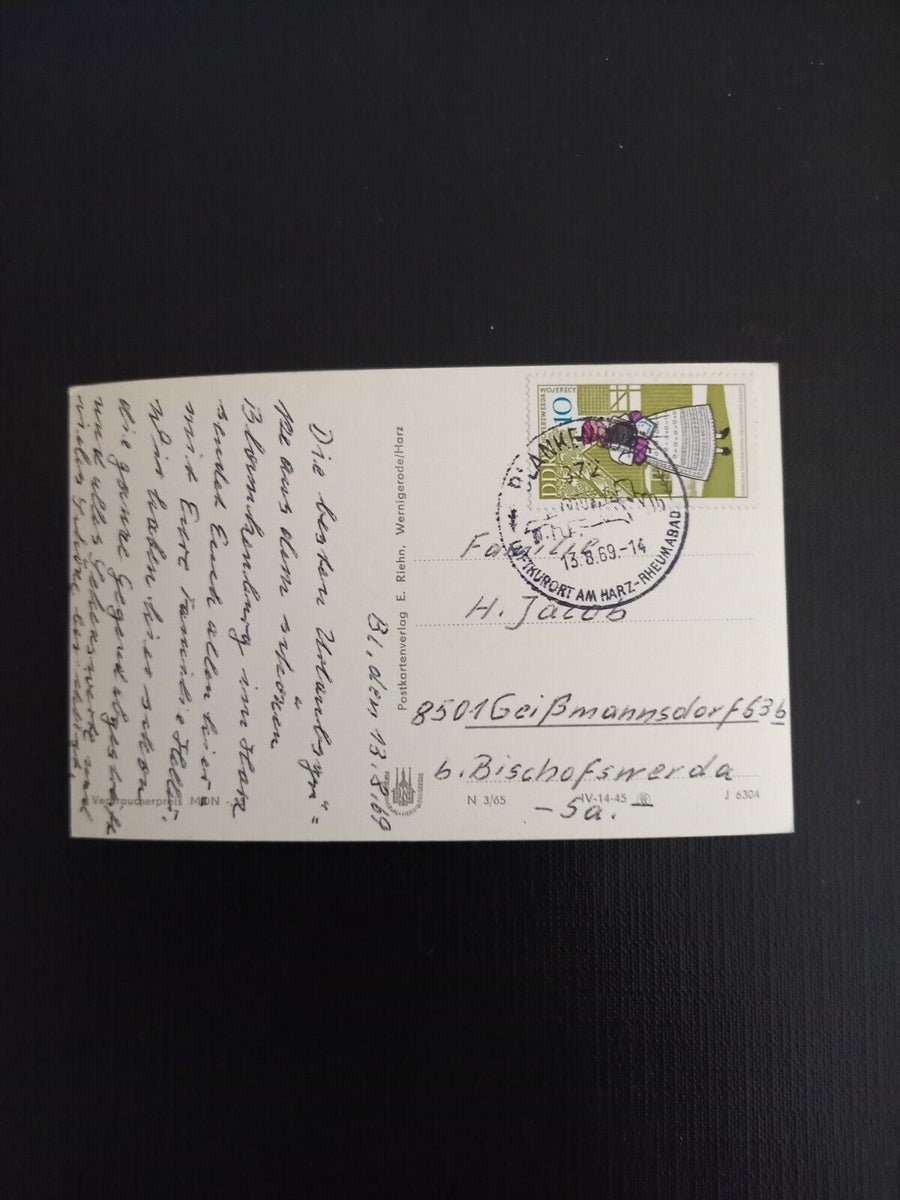 Bl, den 13.8.69
Die besten Urlaubsgrü=
ße aus dem schönen
Blankenburg im Harz
sendet Euch allen hier
mit Eure Familie Heller.
Wir haben hier schon
die ganze Gegend
und alles Sehenswerte und
viles Schöne
Postkartenverlag E. Riehn, Wernigerode/Harz
DDR
10
HOYERSWERDA WOJERECY
BLANKE
372
13.8.69.-14
LUFTKURORT AM HARZ-RHEUMABAD
Familie
H. Jacob
8501 Geißmannsdorf 63b
b. Bischofswerda
-Sa.-
Verbraucherpreis MDN
N 3/65
IV-14-45
J 6304